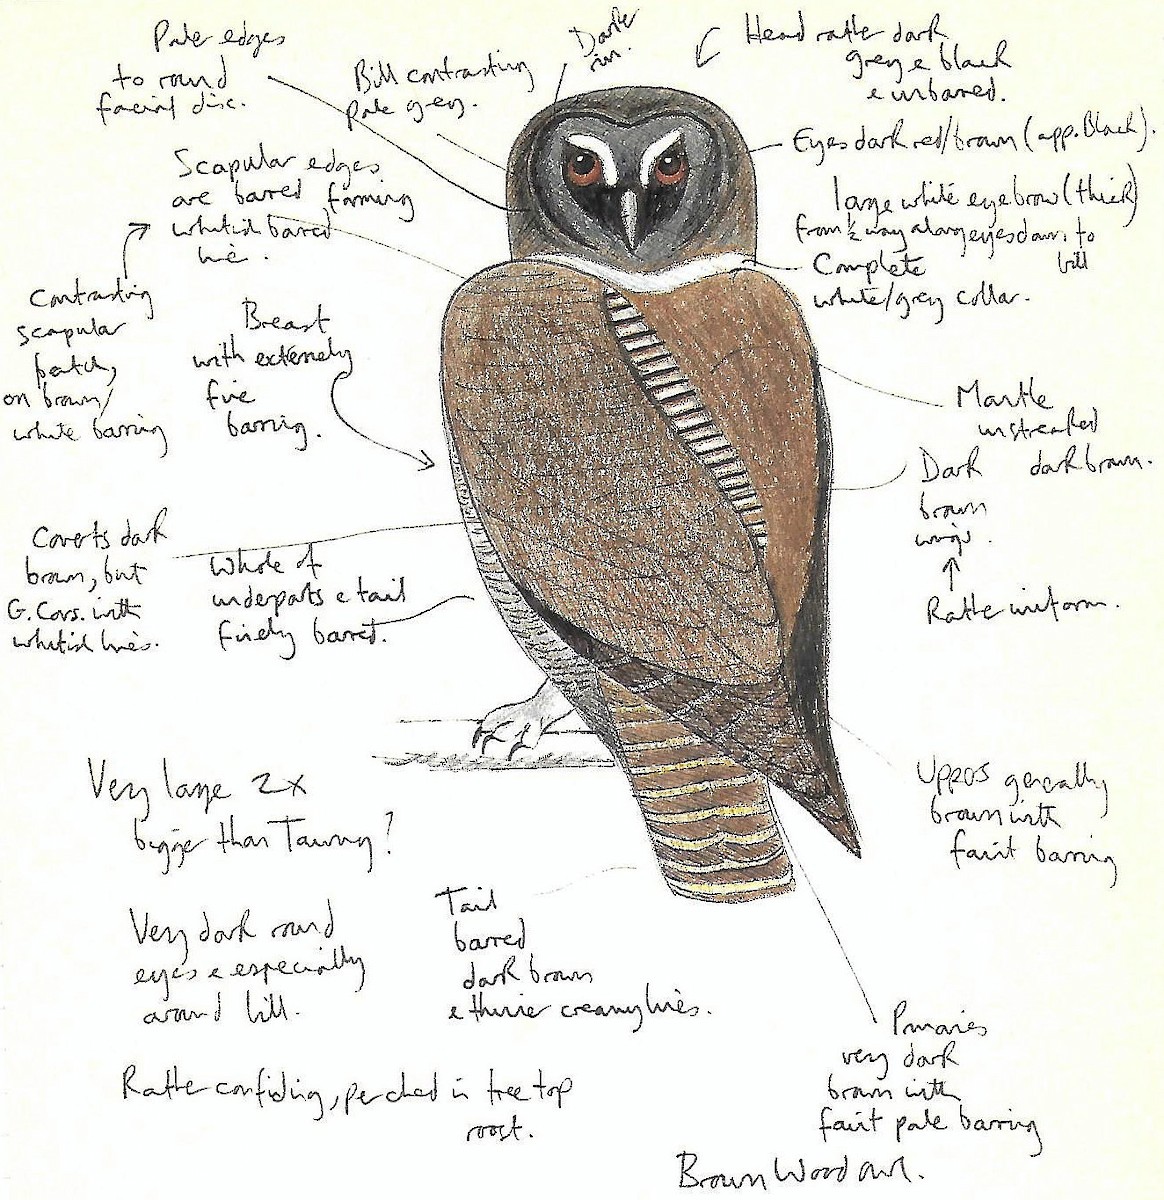 Pale edges
to round
facial disc.
Bill contrasting
pale grey.
Darker
rim.
Head rather dark
grey & black
& unbarred.
Eyes dark red/brown (app. Black).
large white eyebrow (thick)
from ½ way along eyes down to
bill
Complete
white/grey collar.
Scapular edges
are barred forming
whitish barred
line.
Contrasting
scapular
patch,
on brown/
white barring
Breast
with extremely
fine
barring.
Mantle
unstreaked
dark brown.
Dark
brown
wings.
Rather uniform.
Coverts dark
brown, but
G. Covs. with
whitish lines.
Whole of
underparts & tail
finely barred.
Very large 2x
bigger than Tawny?
Uppers generally
brown with
faint barring
Very dark round
eyes & especially
around bill.
Tail
barred
dark brown
& thinner creamy lines.
Primaries
very dark
brown with
faint pale barring
Rather confiding, perched in tree top
roost.
Brown Wood owl.